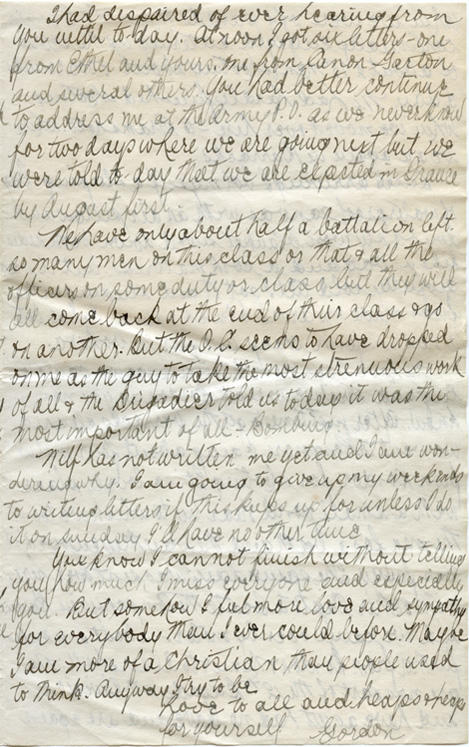 I had despaired of ever hearing from
you until to-day. At noon I got six letters - one
from Ethel and yours. one from Lanor Garton
and several others. You had better continue
to address me at the Army P.O. as we never know
for two days where we are going next but we
were told to-day that we are expected in France
by August first.
We have only about half a battalion left.
so many men on this class or that & all the
officers on some duty or class, but they will
all come back at the end of their class & go
on another. But the O.C. seems to have dropped
on me as the guy to take the most strenuous work
of all & the Brigadier told us to-day it was the
most important of all - Bombing.
Wilf has not written me yet and I am won-
dering why. I am going to give up my weekends
to writing letters if this keeps up for unless I do
it on Sunday I'll have no other time
You know I cannot finish without telling
you how much I miss everyone and especially
you. But somehow I feel more love and sympathy
for everybody than I ever could before. Maybe
I am more of a Christian than people used
to think. Anyway I try to be
Love to all and heaps & heaps
for yourself Gordon